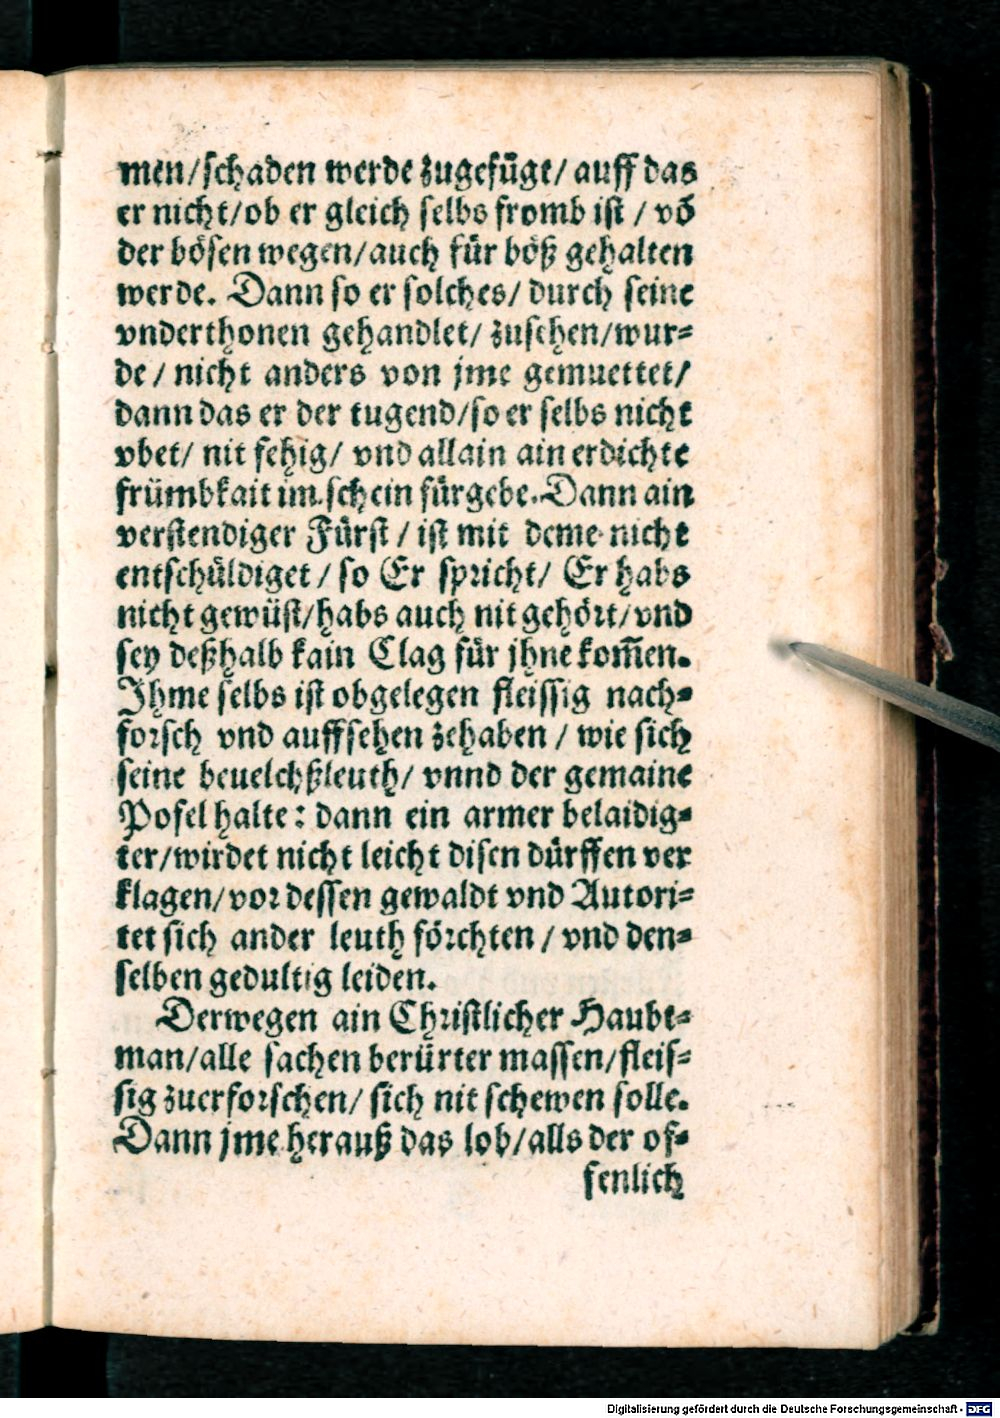 men/schaden werde zugefüge/ auff das
er nicht/ob er gleich selbs fromb ist / võ
der bösen wegen/auch für böß gehalten
werde. Dann so er solches/ durch seine
vnderthonen gehandlet/ zusehen/wur-
de / nicht anders von jme gemuettet/
dann das er der tugend/so er selbs nicht
vbet/ nit fehig/ vnd allain ain erdichte
frümbkait im schein fürgebe. Dann ain
verstendiger Fürst / ist mit deme nicht
entschüldiget / so Er spricht/ Er habs
nicht gewüst/habs auch nit gehört/vnd
sey deßhalb kain Clag für jhne kom̃en.
Ihme selbs ist obgelegen fleissig nach-
forsch vnd auffsehen zehaben / wie sich
seine beuelchßleuth/ vnnd der gemaine
Pofel halte: dann ein armer belaidig-
ter/wirdet nicht leicht disen dürffen ver
klagen/vor dessen gewaldt vnd Autori-
tet sich ander leuth förchten / vnd den-
selben gedultig leiden.
Derwegen ain Christlicher Haubt-
man/alle sachen berürter massen/fleis-
sig zuerforschen/ sich nit schewen solle.
Dann jme herauß das lob/alls der of-
fenlich
Digitalisierung gefördert durch die Deutsche Forschungsgemeinschaft - DFG